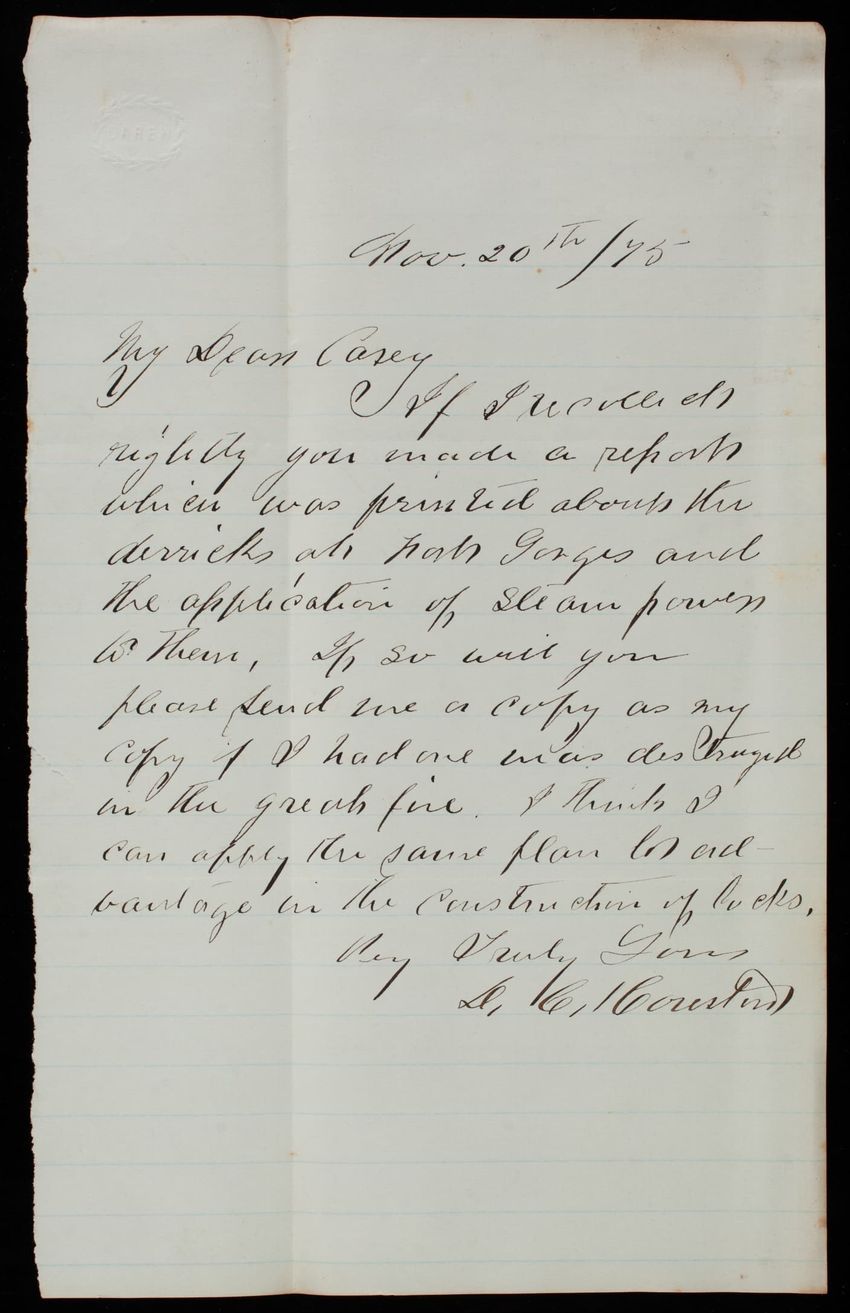 Nov. 20th/75
My Dear Casey
If I recollect
rightly you made a report
which was printed about the
derricks at Fort Gorges and
the application of steam power
to them, If so will you
please send me a copy as my
copy if I had one was destroyed
in the great fire. I think I
can apply the same plan to ad-
vantage in the construction of locks.
Very Truly Yours
D. C. Houston